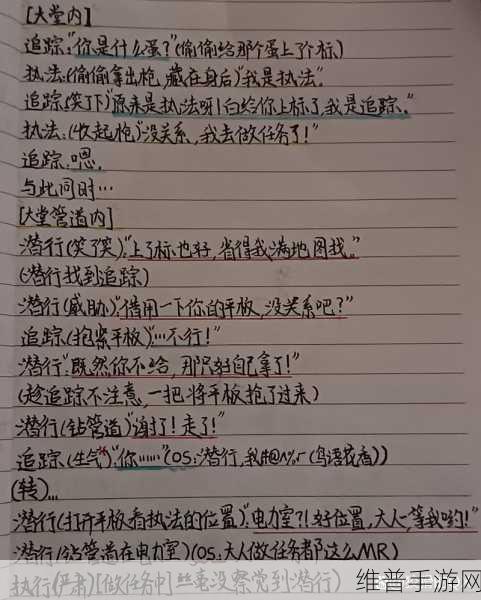 [大堂内]
追踪:“你是什么蛋?”(偷偷给那个蛋上了个标)
执法:(偷偷拿出枪,藏在身后)“我是执法”
追踪(笑了下)“原来是执法呀!白给你上标了,我是追踪。”
执法:(收起枪)“没关系,我去做任务了!”
追踪:嗯.
与此同时…
[大堂管道内]
潜行(笑了笑):“上了标也好,省得我满地图找。”
(潜行找到追踪)
潜行(威胁):“借用一下你的平板,没关系吧?”
追踪(抱紧平板)“…不行!”
潜行:“既然你不给,那只好自己拿了!”
(趁追踪不注意,一把将平板抢了过来)
潜行(钻管道)“谢了!走了!”
追踪(生气)“你……”(OS:潜行,我#@N%r(鸟语花香))
(转)…
潜行(打开平板看执法的位置):“电力室?!好位置,大人,等我哟!”
潜行(钻管道在电力室)(OS:大人做任务都这么MR)
执行(严肃)[做任务中]丝毫没察觉到潜行)
维普手游网